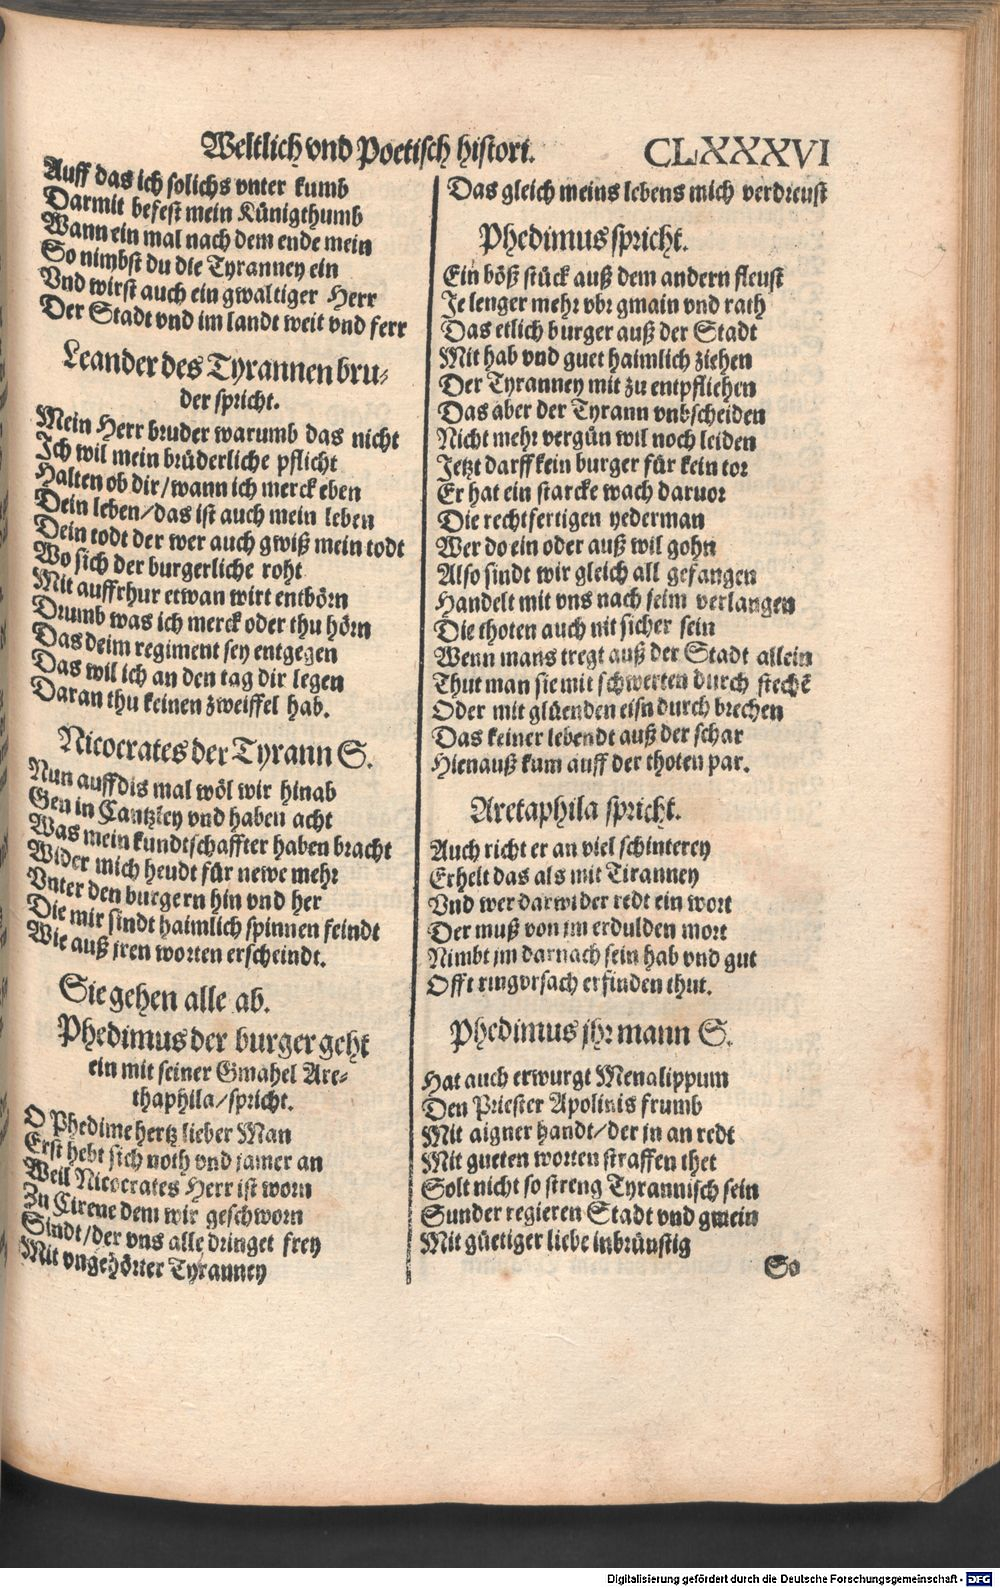 Weltlich vnd Poetisch histori. CLXXXVI
Auff das ich solichs vnter kumb
Darmit befest mein Künigthumb
Wann ein mal nach dem ende mein
So nimbst du die Tyranney ein
Vnd wirst auch ein gwaltiger Herr
Der Stadt vnd im landt weit vnd ferr
Leander des Tyrannen bru-
der spricht.
Mein Herr bruder warumb das nicht
Ich wil mein brüderliche pflicht
Halten ob dir/wann ich merck eben
Dein leben/das ist auch mein leben
Dein todt der wer auch gwiß mein todt
Wo sich der burgerliche roht
Mit auffrhur etwan wirt entbörn
Drumb was ich merck oder thu hörn
Das deim regiment sey entgegen
Das wil ich an den tag dir legen
Daran thu keinen zweiffel hab.
Nicocrates der Tyrann S.
Nun auff dis mal wöl wir hinab
Gen in Cantzley vnd haben acht
Was mein kundtschaffter haben bracht
Wider mich heudt für newe mehr
Vnter den burgern hin vnd her
Die mir sindt haimlich spinnen feindt
Wie auß jren worten erscheindt.
Sie gehen alle ab.
Phedimus der burger geht
ein mit seiner Gmahel Are-
thaphila/spricht.
O Phedime hertz lieber Man
Erst hebt sich noth vnd jamer an
Weil Nicocrates Herr ist worn
Zu Cirene dem wir geschworn
Sindt/der vns alle dringet frey
Mit vngehörter Tyranney
Das gleich meins lebens mich verdreust
Phedimus spricht.
Ein böß stück auß dem andern fleust
Je lenger mehr vbr gmain vnd rath
Das etlich burger auß der Stadt
Mit hab vnd guet haimlich ziehen
Der Tyranney mit zu entpfliehen
Das aber der Tyrann vnbscheiden
Nicht mehr vergün wil noch leiden
Jetzt darff kein burger für kein tor
Er hat ein starcke wach daruor
Die rechtfertigen yederman
Wer do ein oder auß wil gohn
Also sindt wir gleich all gefangen
Handelt mit vns nach seim verlangen
Die thoten auch nit sicher sein
Wenn mans tregt auß der Stadt allein
Thut man sie mit schwerten durch stechē
Oder mit glüenden eisn durch brechen
Das keiner lebendt auß der schar
Hienauß kum auff der thoten par.
Aretaphila spricht.
Auch richt er an viel schinterey
Erhelt das als mit Tiranney
Vnd wer darwider redt ein wort
Der muß von jm erdulden mort
Nimbt jm darnach sein hab vnd gut
Offt ring vrsach erfinden thut.
Phedimus jhr mann S.
Hat auch erwurgt Menalippum
Den Priester Apolinis frumb
Mit aigner handt/der jn an redt
Mit gueten worten straffen thet
Solt nicht so streng Tyrannisch sein
Sunder regieren Stadt vnd gmein
Mit güetiger liebe inbrünstig
So
Digitalisierung gefördert durch die Deutsche Forschungsgemeinschaft - DFG